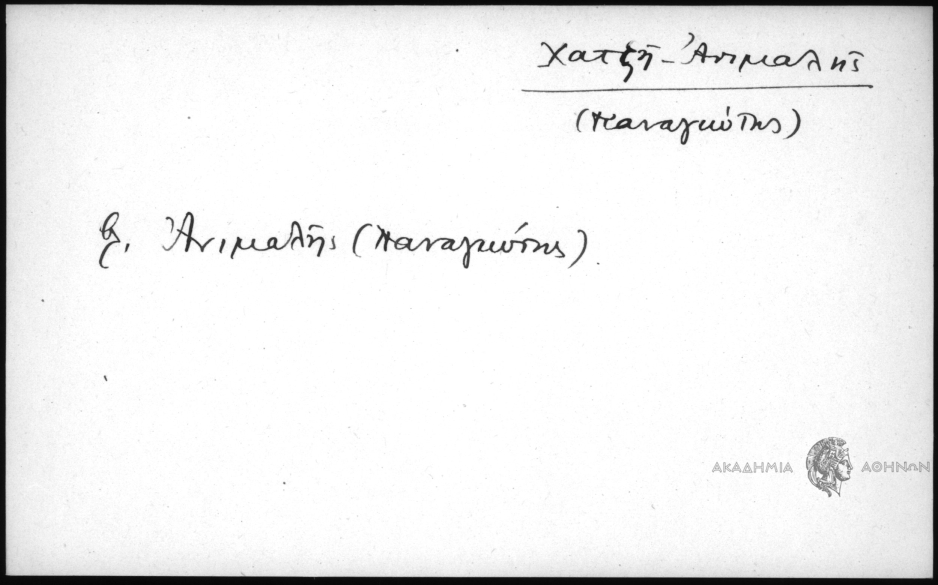 Χατζῆ-Ἀνιμαλής
(Παναγιώτης)
βλ. Ἀνιμαλῆς (Παναγιώτης).
ΑΚΑΔΗΜΙΑ ΑΘΗΝΩΝ